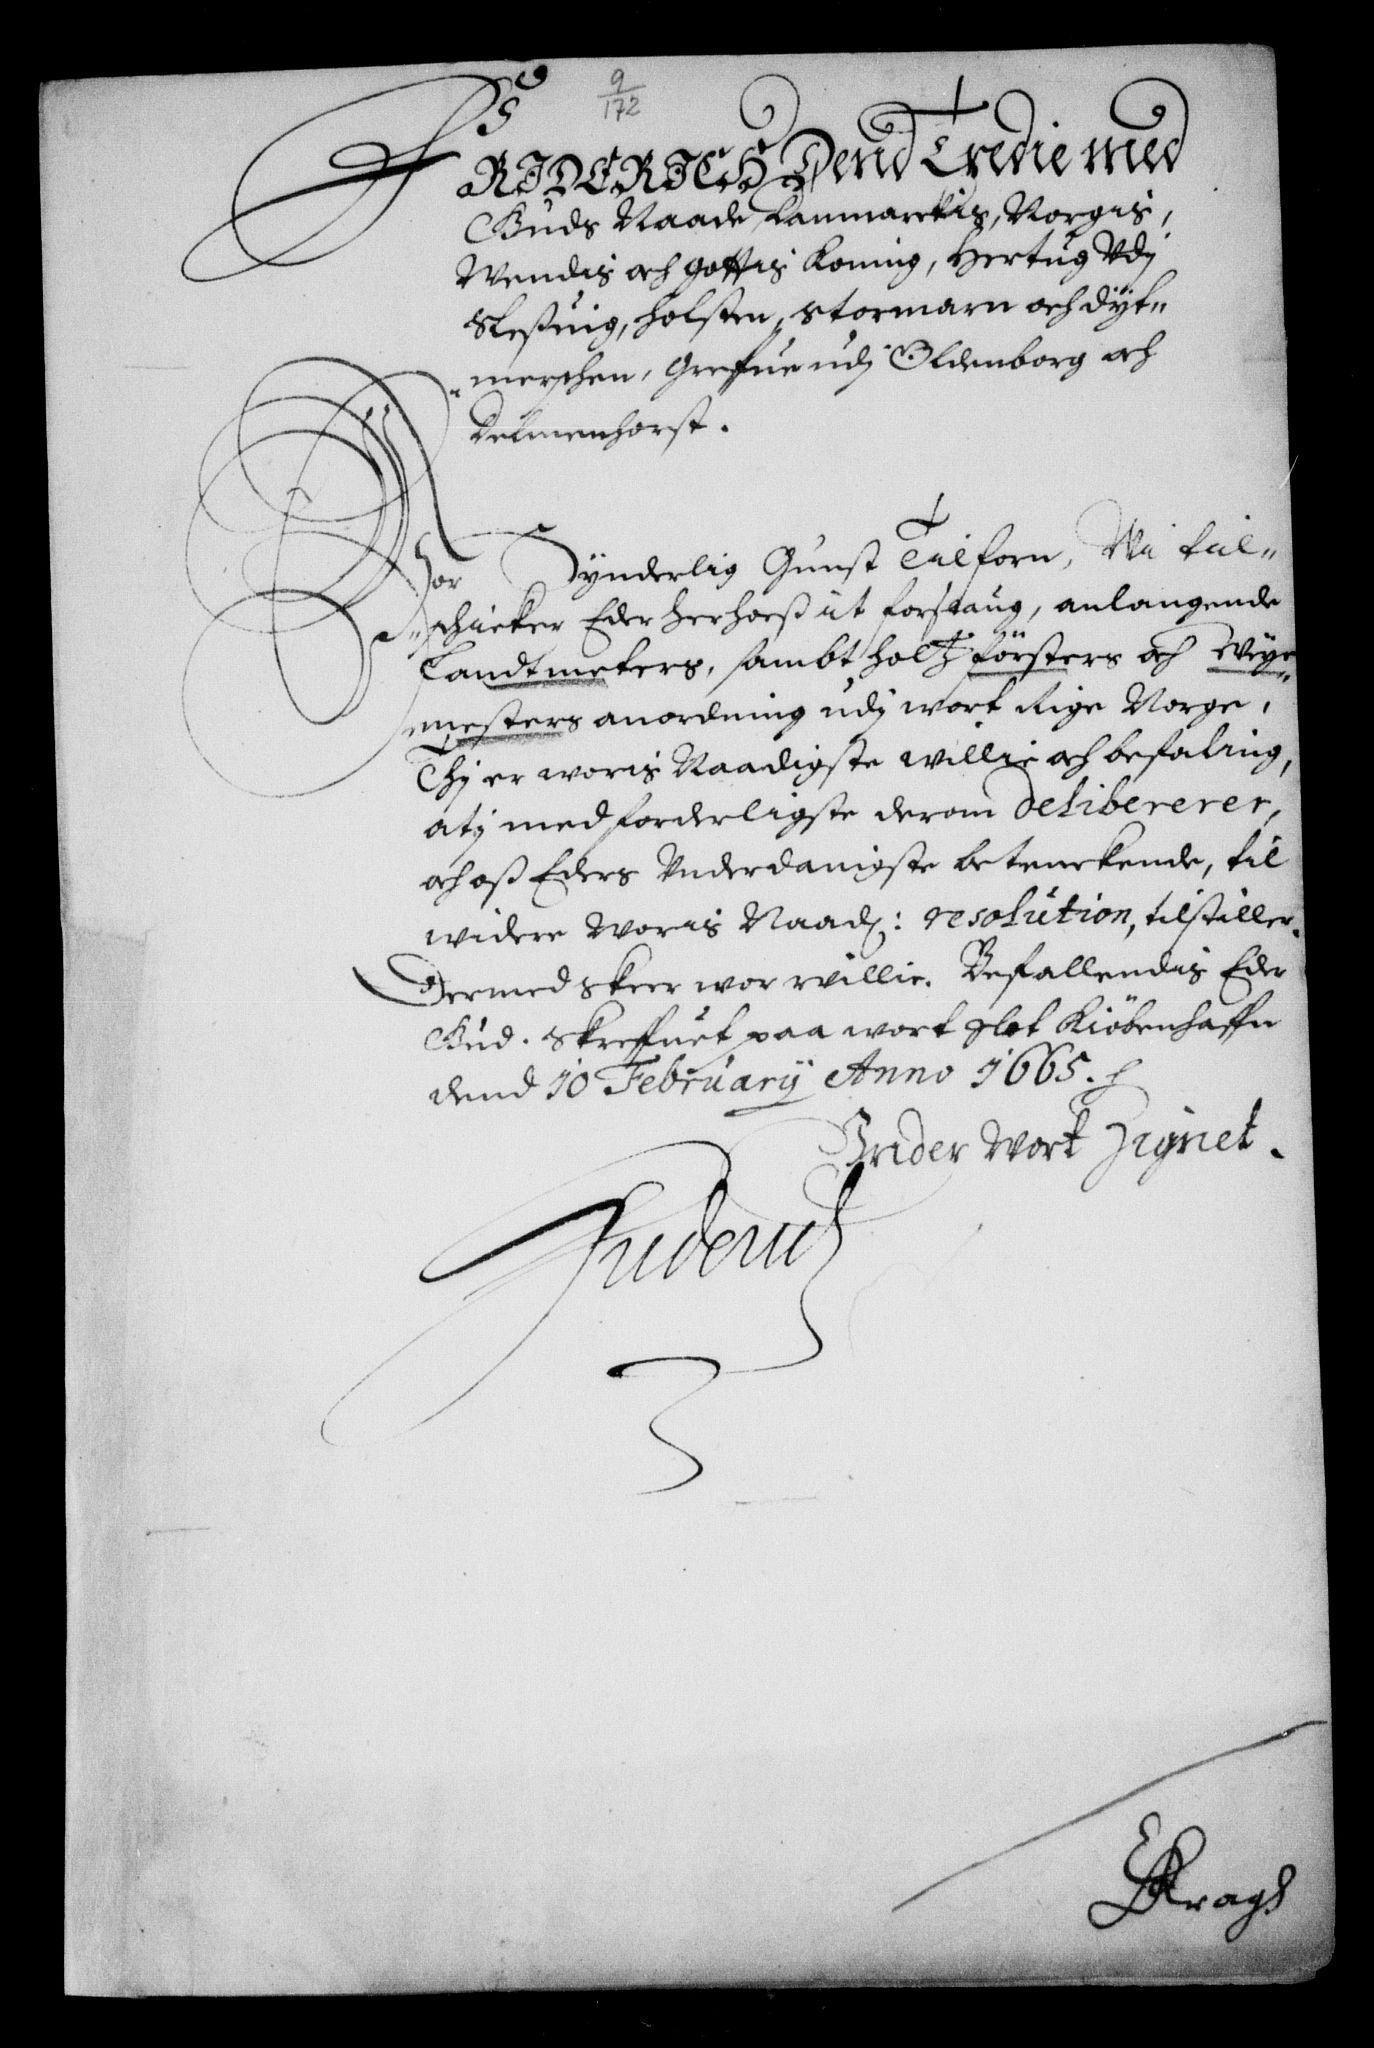 9
172
FRIDERICH Dend Tredie med
Guds Naade Danmarckis, Norgis,
Wendis och Gottis Koning, Hertug Vdj
Sleßuig, Holsten, Stormarn och Dÿt„
„merschen, Greffue udj Oldenborg och
Delmenhorst.
Wor Sÿnderlig Gunst Tilforn, Wi til„
„schicker Eder herhoeß it forslaug, anlangende
Landtmeters, sambt holtz försters och Weye„
mesters anordning udj wort Rige Norge,
Thj er woris Naadigste willie och befaling,
atj med forderligste derom delibererer,
och oß Eders Vnderdanigste betenckende, til
widere woris Naad: resolution, tilstiller.
Dermed skeer wor willie. Befallendis Eder
Gud. Skreffuet paa wort Slot Kiöbenhaffn
dend 10 Februarÿ Anno 1665.
Vnder Wort Zignet.
Friderich
E Kragh